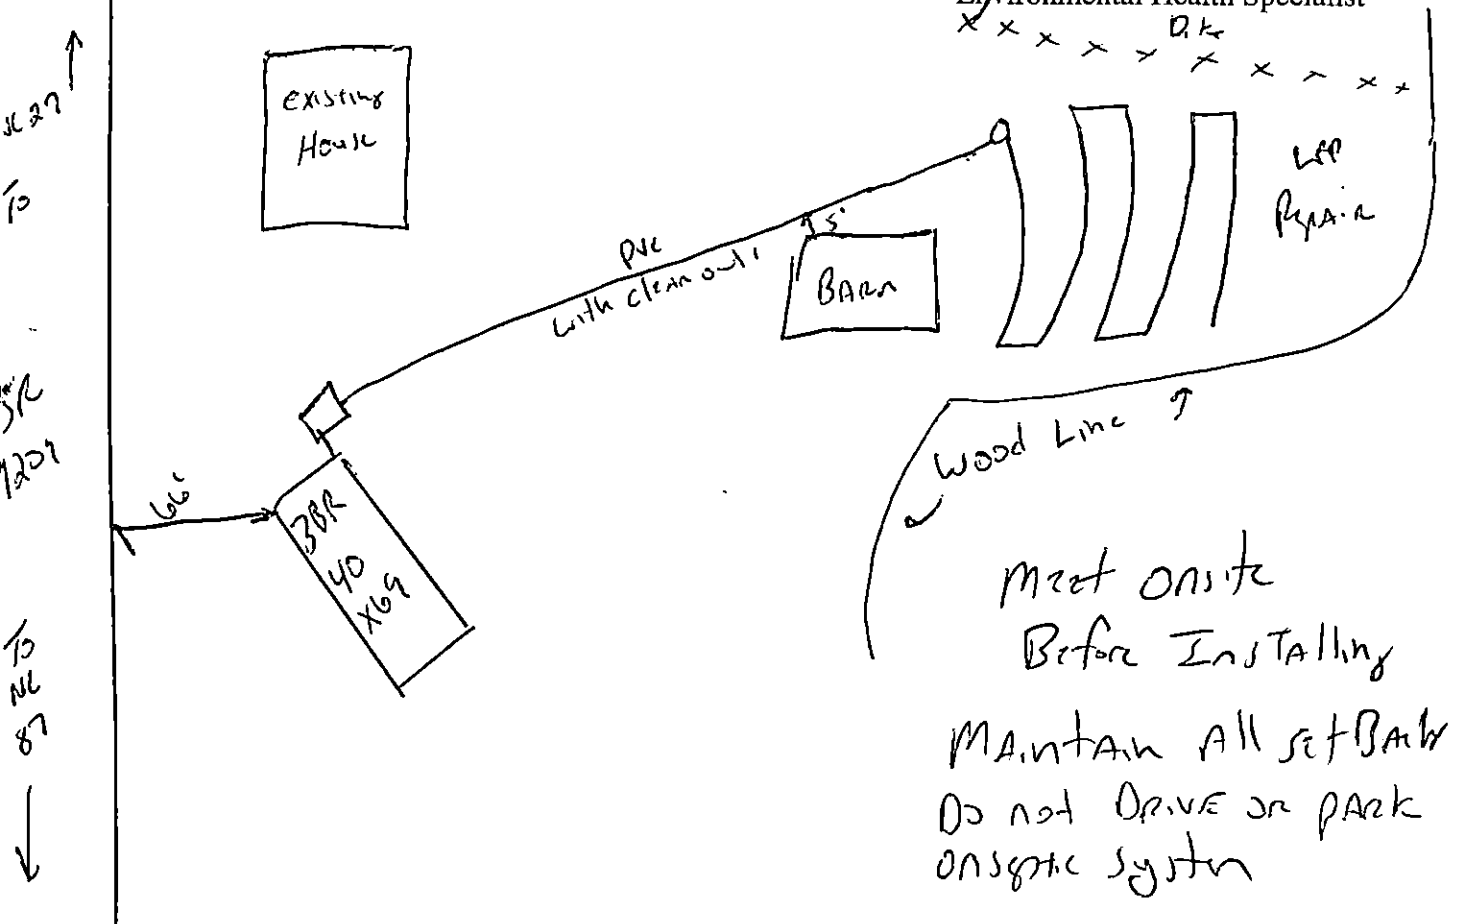 Environmental Health Specialist
Existing
House
PVC
with cleanouts
5'
BARN
LPP
Repair
Wood Line
66'
3BR
40
x69
To
SR
To
NC
87
Meet onsite
Before InsTAlling
MAintAin All setBAcks
Do not DRIVE or pARk
on septic system